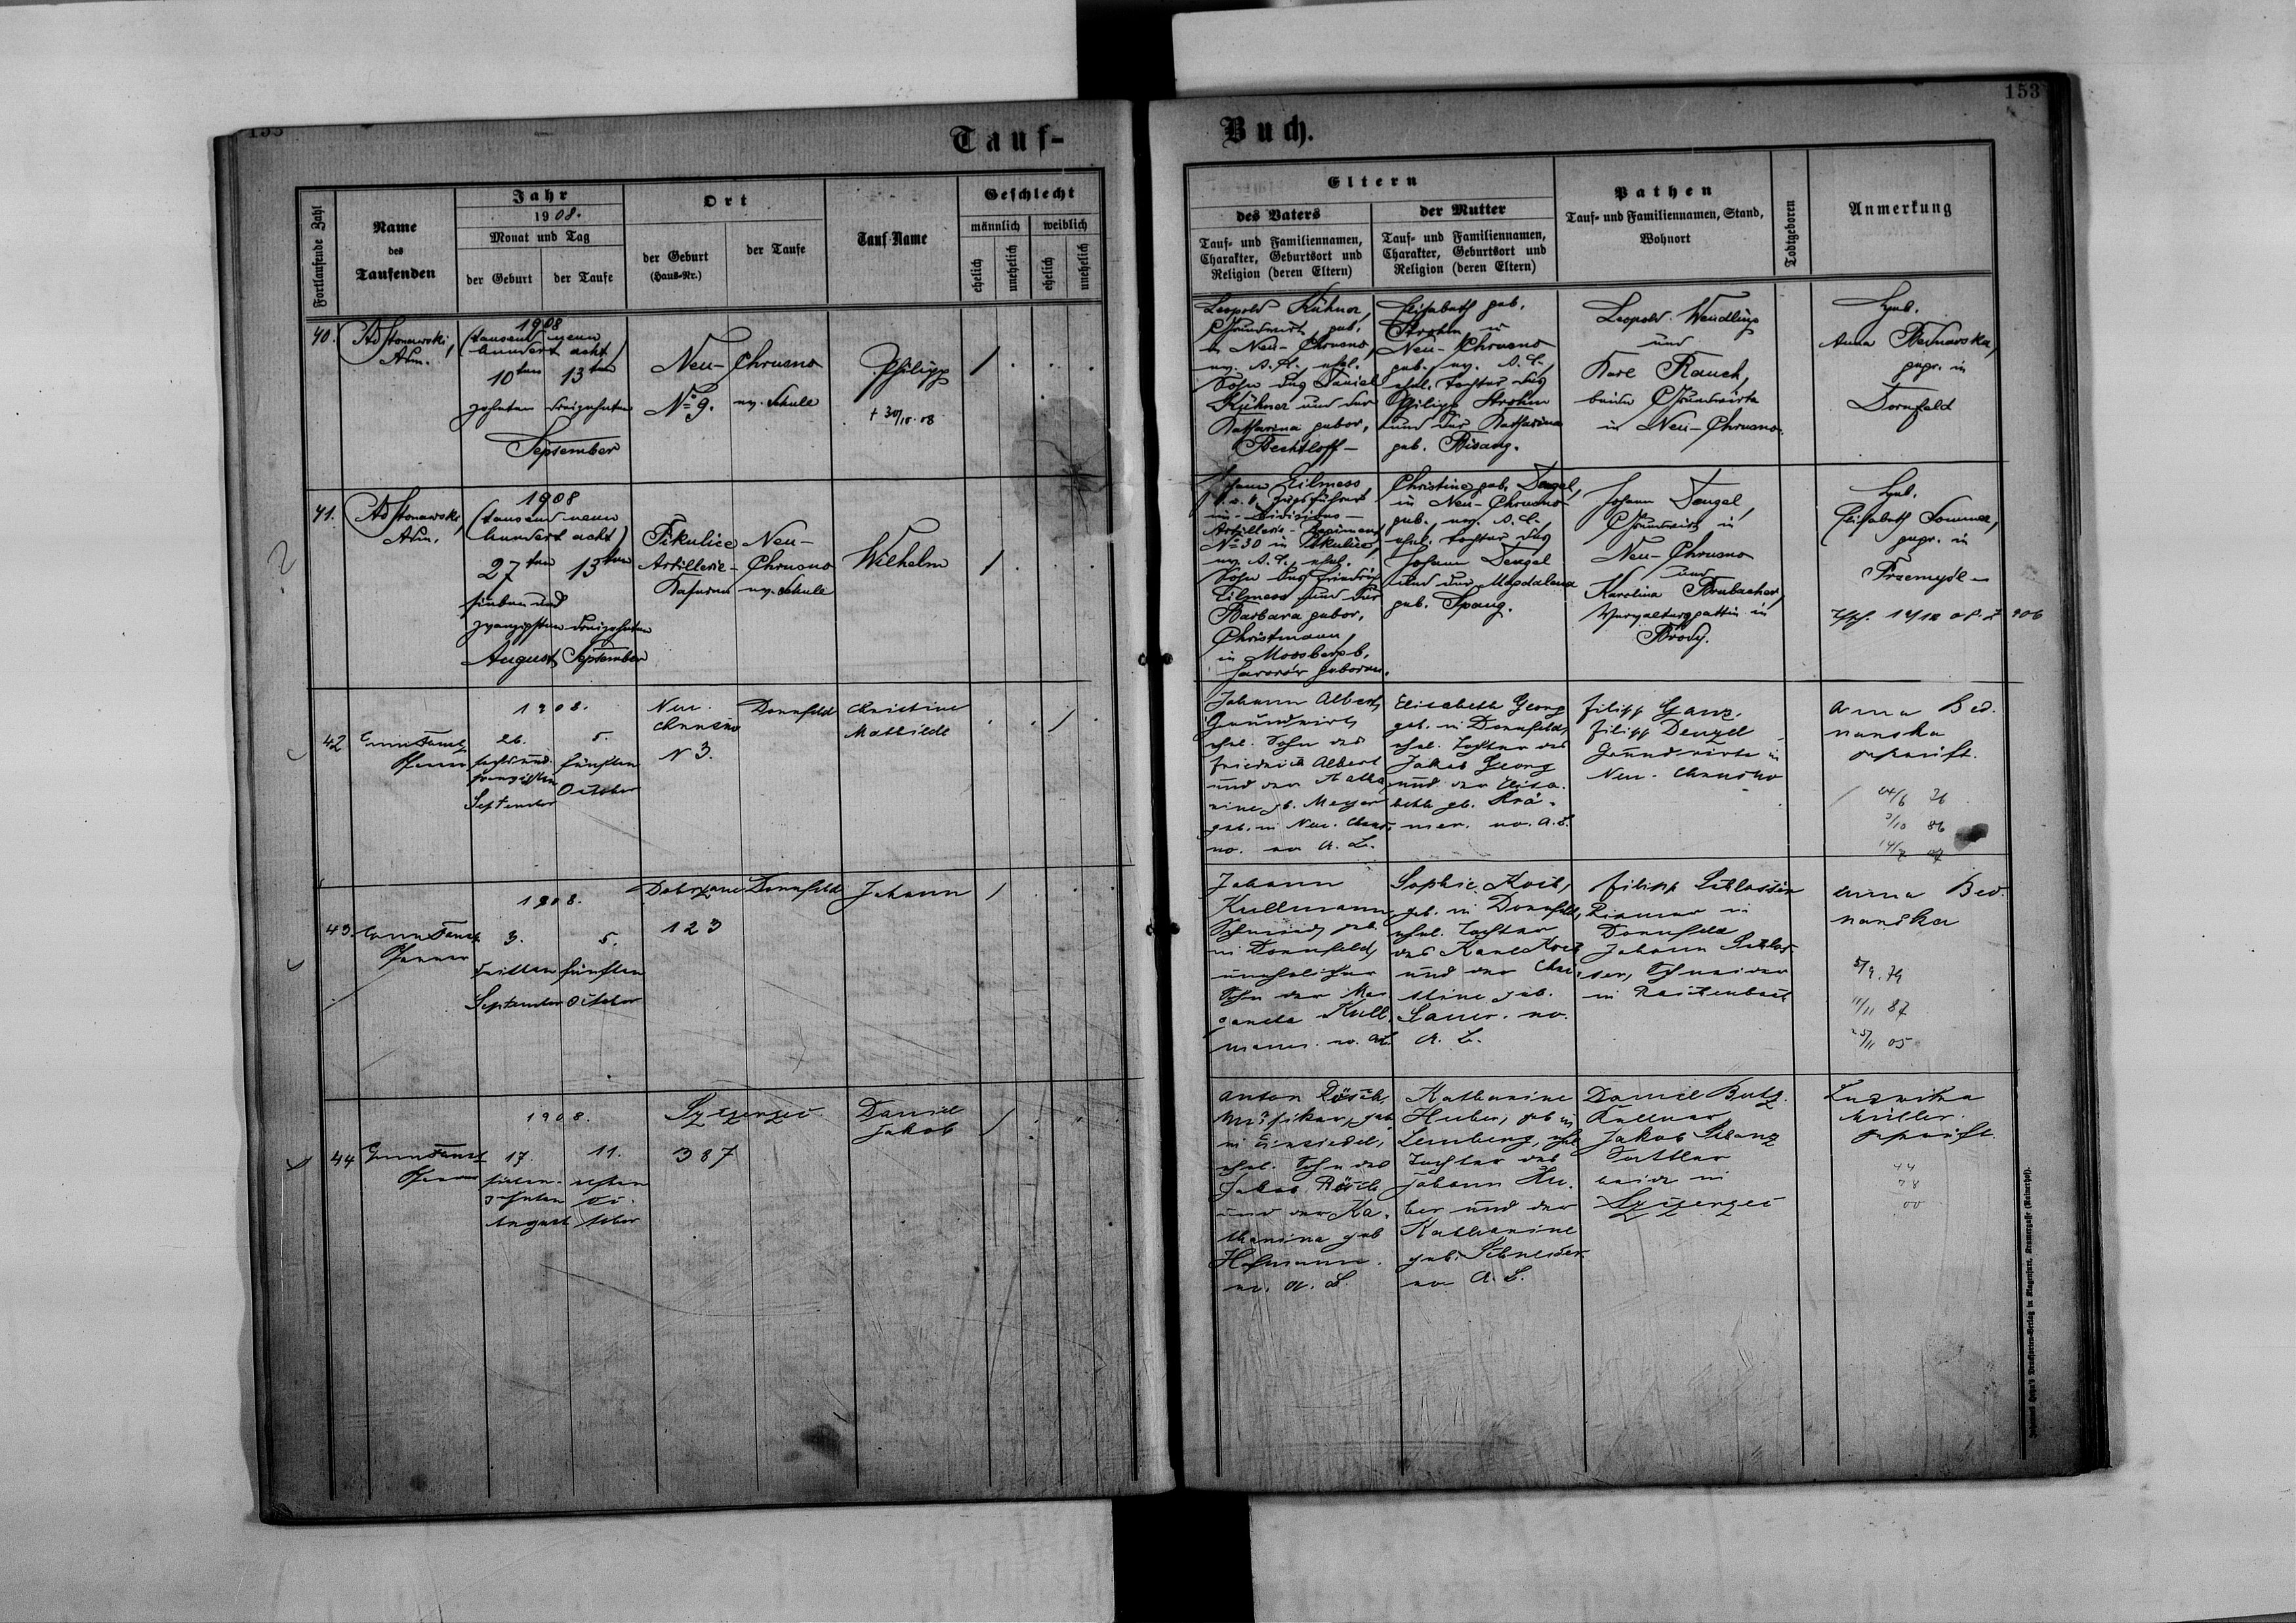 153
Tauf-
Fortlaufende Zahl
Name
des
Taufenden
Jahr
1908.
Monat und Tag
der Geburt
der Taufe
Ort
der Geburt
(Haus-Nr.)
der Taufe
Tauf-Name
Geschlecht
männlich
weiblich
ehelich
unehelich
ehelich
unehelich
40.
Adm.
1908
(tausend neun
hundert acht)
10ten 13ten
zehnten dreizehnten
September
Neu-Chrusno
No 9. ev. Schule
Philipp
† 30/10.08
41.
Adm.
1908
(tausend neun
hundert acht)
27ten 13ten
sieben und
zwanzigsten dreizehnten
August September
Pikulice Neu-
Artillerie- Chrusno
Kaserne ev. Schule
Wilhelm
42
Pfarrer
1908.
26. 5.
sechsund-
zwanzigsten fünften
September October
Neu-
Chrusno
N 3.
Dornfeld
Christine
Mathilde
43.
Pfarrer
1908.
3. 5.
dritten fünften
September October
Dobrzane Dornfeld
123
Johann
44
Pfarrer
1908.
17. 11.
sieben- elften
zehnten Oc-
August tober
Szczerzec
387
Daniel
Jakob
Buch.
153
Eltern
des Vaters
Tauf- und Familiennamen,
Charakter, Geburtsort und
Religion (deren Eltern)
der Mutter
Tauf- und Familiennamen,
Charakter, Geburtsort und
Religion (deren Eltern)
Pathen
Tauf- und Familiennamen, Stand,
Wohnort
Todtgeboren
Anmerkung
Leopold Kühner,
Grundwirt, geb.
in Neu-Chrusno,
ev. A. C., ehel.
Sohn des Daniel
Kühner und der
Katharina gebor.
Bechtloff
Elisabeth geb.
Strohm in
Neu-Chrusno
geb. ev. A. C.,
ehel. Tochter des
Philipp Strohm
und der Katharina
geb. Bisang.
Leopold Wendling
und
Karl Rauch,
beide Grundwirte
in Neu-Chrusno.
Heb.
Anna Bednarska,
gepr. in
Dornfeld
Johann Eilmess,
k. u. k. Zugsführer
im Divisions-
Artillerie-Regiment
No 30 in Pikulice,
ev. A. C., ehel.
Sohn des Friedrich
Eilmess und der
Barbara gebor.
Christmann,
in Moosberg b.
Jaworów geboren.
Christine geb. Dengel,
in Neu-Chrusno
geb., ev. A. C.,
ehel. Tochter des
Johann Dengel
und der Magdalena
geb. Spang.
Johann Dengel,
Grundwirt in
Neu-Chrusno
und
Karolina Brubacher,
in
Brody.
Heb.
Elisabeth Sommer,
gepr. in
Przemysl
906
Johann Albert
Grundwirt
ehel. Sohn des
Friedrich Albert
und der Katha-
rine gb. Meyer
geb. in Neu-Chrus-
no. ev A. C.
Elisabeth Georg
geb. in Dornfeld,
ehel. Tochter des
Jakob Georg
und der Elisa-
beth gb. Krä-
mer. ev. A. C.
Filipp Ganz,
Filipp Denzel
Grundwirte in
Neu-Chrusno
Anna Bed-
narska
geprüft.
24/6 76
3/10 86
Johann
Kullmann,
Schmied, geb.
in Dornfeld,
unehelicher
Sohn der Mar-
gareta Kull-
mann. ev. A. C.
Sophie Koch,
geb. in Dornfeld,
ehel. Tochter
des Karl Koch
und der Chri-
stine geb.
Sauer. ev.
A. C.
Filipp Schlosser
Riemer in
Dornfeld
Johann Schlos-
ser, Schneider
in Reichenbach
Anna Bed-
narska
5/9. 79
11/11 87
25/11 05
Anton Rösch,
Musiker, geb.
in Einsiedel,
ehel. Sohn des
Jakob Rösch
und der Ka-
tharina geb
Hofmann.
ev. A. C.
Katharine
Huber, geb in
Lemberg, ehel
Tochter des
Johann Hu-
ber und der
Katharine
geb. Schneider.
ev A. C.
Daniel Butz.
Kellner
Jakob Schanz
Sattler
beide in
Szczerzec
Ludwika
Müller.
geprüft.
44
78
00